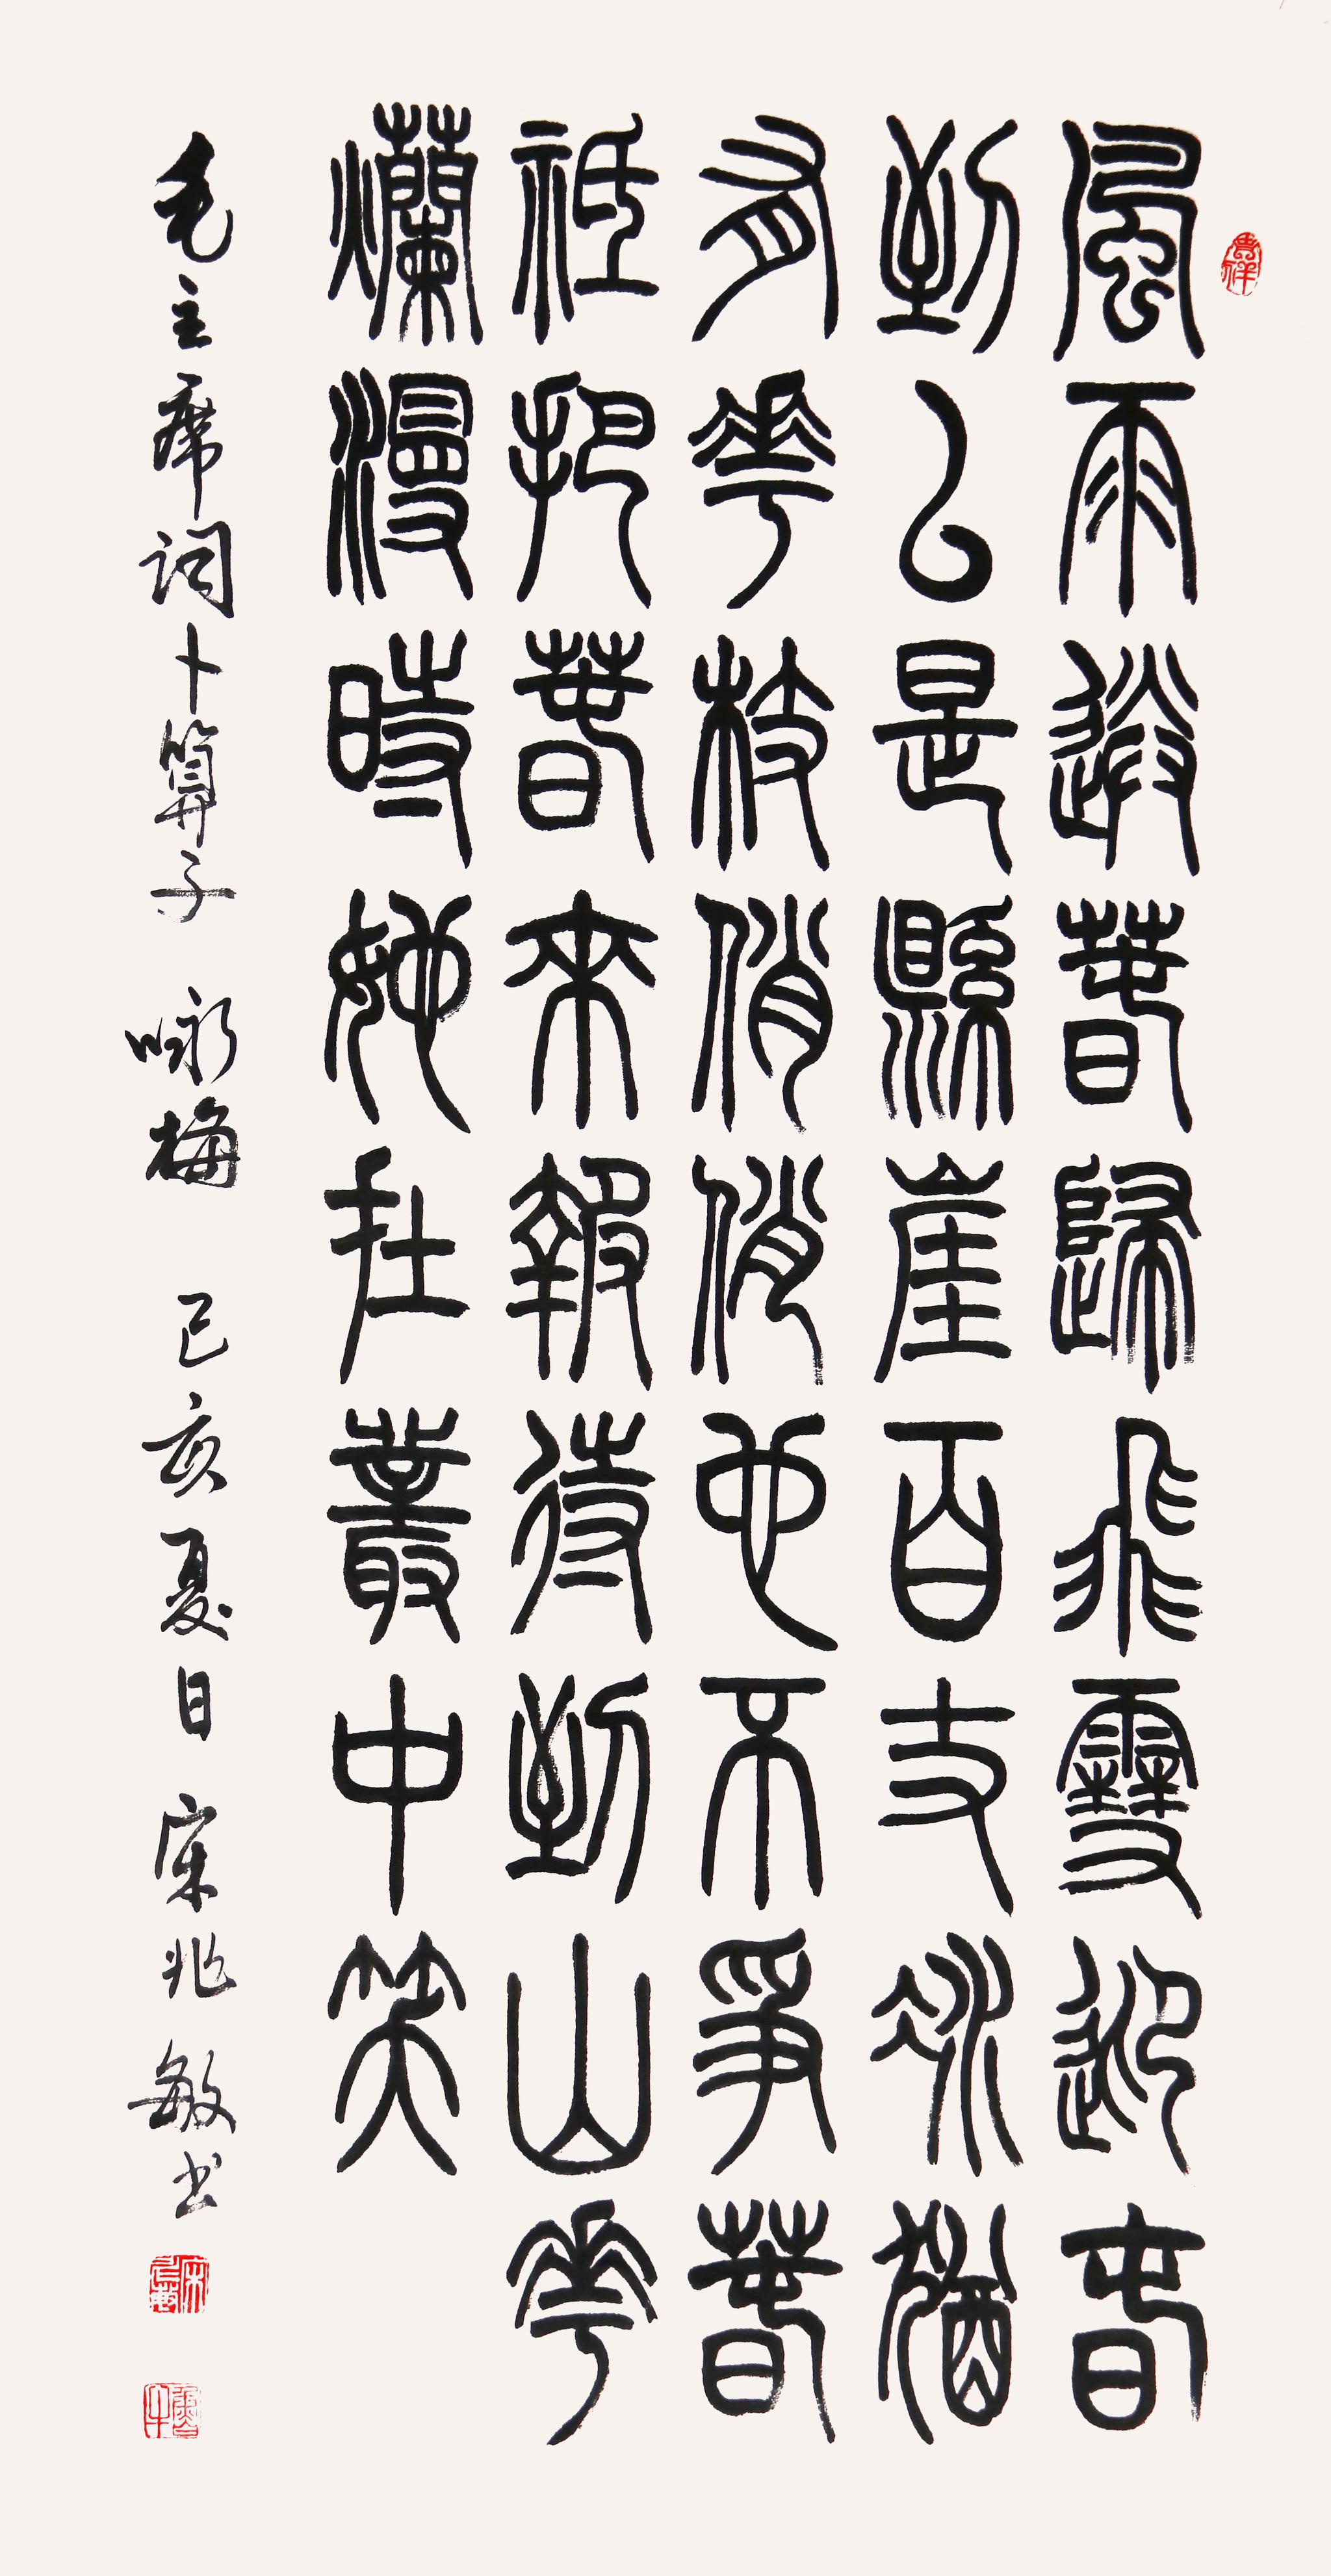 風雨送春歸飛雪迎春
到已是懸崖百丈冰猶
有花枝俏俏也不爭春
祇把春來報待到山花
爛漫時她在叢中笑
毛主席词卜算子 咏梅 己亥夏日 宋兆敏书